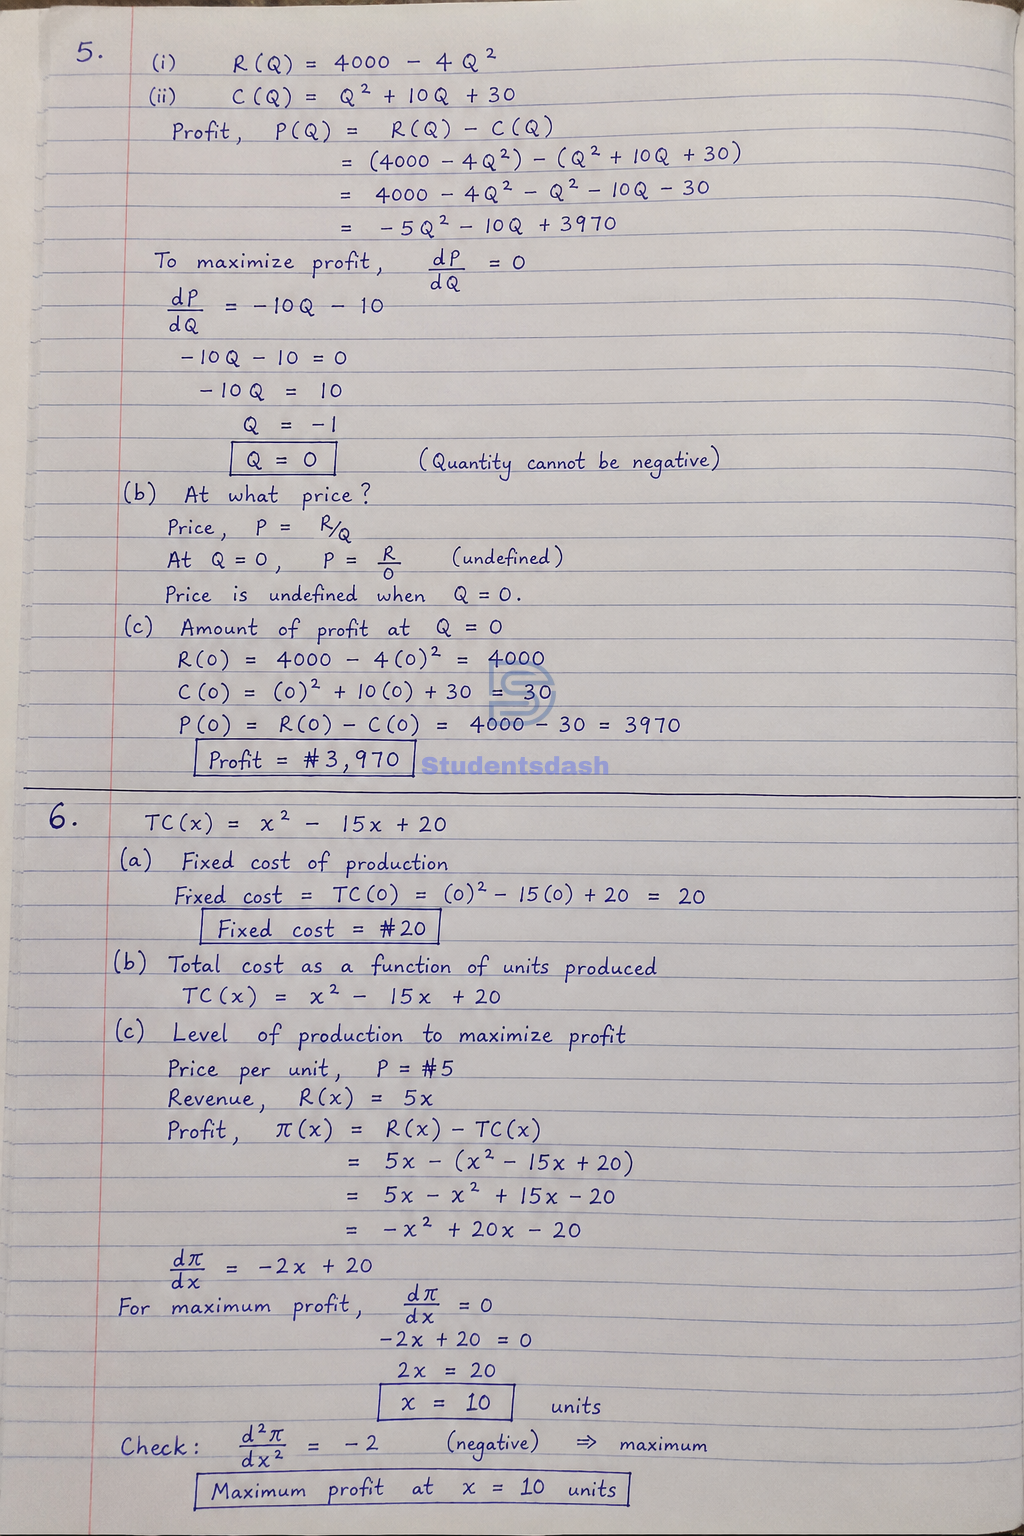 5. (i) R(Q) = 4000 − 4Q²
(ii) C(Q) = Q² + 10Q + 30
Profit, P(Q) = R(Q) − C(Q)
= (4000 − 4Q²) − (Q² + 10Q + 30)
= 4000 − 4Q² − Q² − 10Q − 30
= −5Q² − 10Q + 3970
To maximize profit, dP/dQ = 0
dP/dQ = −10Q − 10
−10Q − 10 = 0
−10Q = 10
Q = −1
Q = 0 (Quantity cannot be negative)
(b) At what price?
Price, P = R/Q
At Q = 0, P = R/0 (undefined)
Price is undefined when Q = 0.
(c) Amount of profit at Q = 0
R(0) = 4000 − 4(0)² = 4000
C(0) = (0)² + 10(0) + 30 = 30
P(0) = R(0) − C(0) = 4000 − 30 = 3970
Profit = #3,970
Studentsdash
6. TC(x) = x² − 15x + 20
(a) Fixed cost of production
Fixed cost = TC(0) = (0)² − 15(0) + 20 = 20
Fixed cost = #20
(b) Total cost as a function of units produced
TC(x) = x² − 15x + 20
(c) Level of production to maximize profit
Price per unit, P = #5
Revenue, R(x) = 5x
Profit, π(x) = R(x) − TC(x)
= 5x − (x² − 15x + 20)
= 5x − x² + 15x − 20
= −x² + 20x − 20
dπ/dx = −2x + 20
For maximum profit, dπ/dx = 0
−2x + 20 = 0
2x = 20
x = 10 units
Check: d²π/dx² = −2 (negative) ⇒ maximum
Maximum profit at x = 10 units